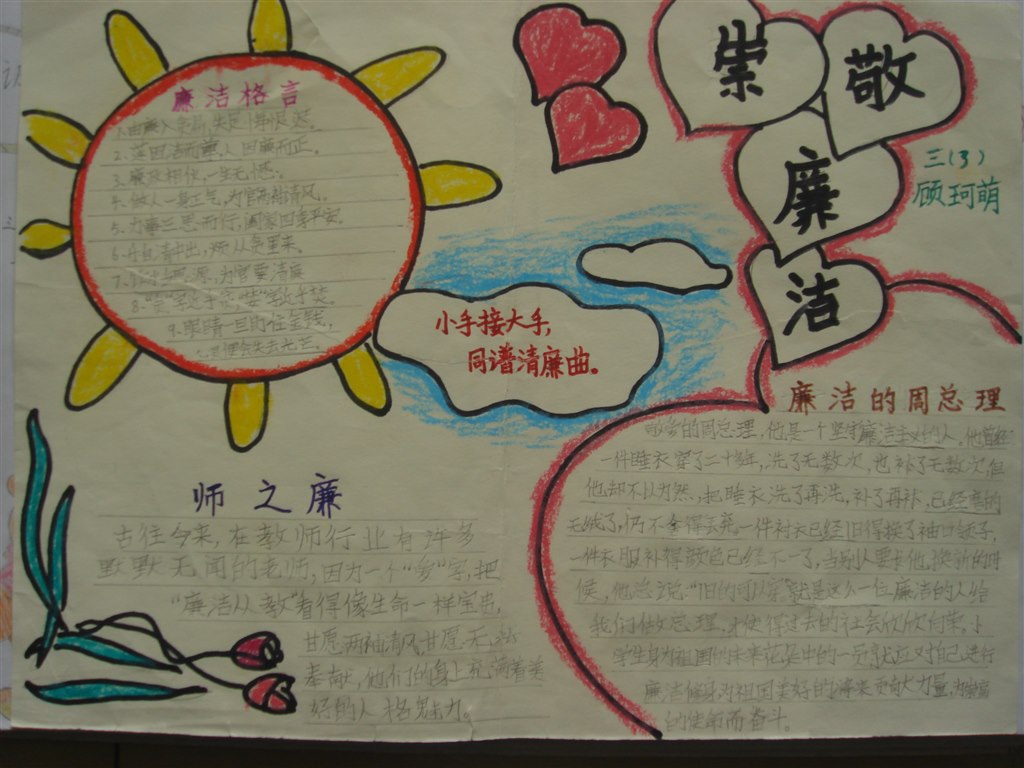 崇敬廉洁
三(3)
顾珂萌
廉洁格言
2、莲因洁而尊,人因廉而正。
4、做人一身正气,为官两袖清风。
5、力廉三思而行,阖家四季平安。
9、眼睛一旦盯住金钱,
小手接大手,
同谱清廉曲。
师之廉
古往今来,在教师行业有许多
默默无闻的老师,因为一个"乡"字,把
"廉洁从教"看得像生命一样宝贵,
甘愿两袖清风,甘愿无私
奉献,他们的身上充满着美
好的人格魅力。
廉洁的周总理
敬爱的周总理,他是一个坚持廉洁的人。他曾经
一件睡衣穿了二十年,洗了无数次,也补了无数次,但
他却不以为然,把睡衣洗了再洗,补了再补,已经磨的
无绒了,仍不舍得丢弃。一件衬衣已经旧得换了袖口领子,
一件衣服补得颜色已经不一了,当别人要求他换新的时
候,他总说:"旧的可以穿"就是这么一位廉洁的人给
我们做总理,才使得过去的社会欣欣向荣。小
学生身为祖国的未来花朵中的一员,就应对自己进行
廉洁修身,为祖国美好的将来
的使命而奋斗。